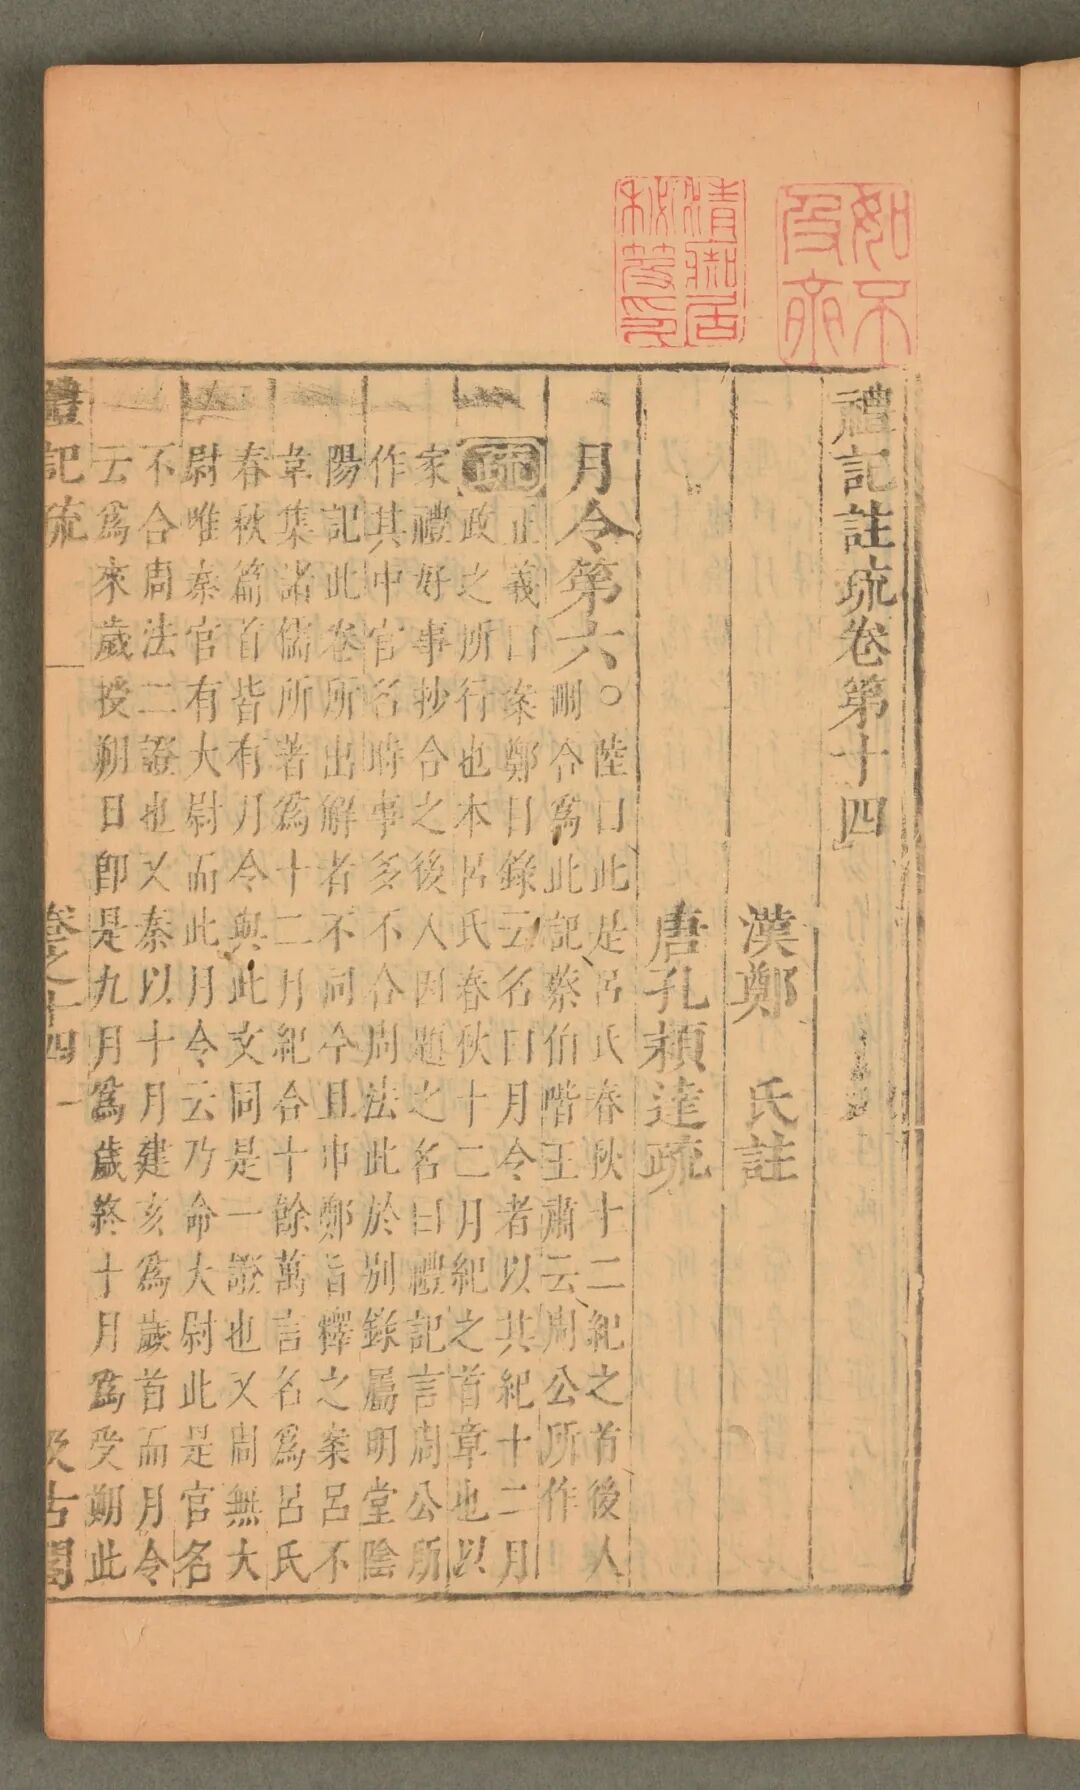 如不及齋
禮記註疏卷第十四
漢鄭 氏註
唐孔穎達疏
月令第六○陸曰此是呂氏春秋十二紀之首後人
刪合爲此記蔡伯喈王肅云周公所作
疏正義曰案鄭目錄云名曰月令者以其紀十二月
政之所行也本呂氏春秋十二月紀之首章也以
家禮好事抄合之後人因題之名曰禮記言周公所
作其中官名時事多不合周法此於別錄屬明堂陰
陽記此卷所出解者不同今且申鄭旨釋之案呂不
韋集諸儒所著爲十二月紀合十餘萬言名爲呂氏
春秋篇首皆有月令與此文同是一證也又周無大
尉唯秦官有大尉而此月令云乃命大尉此是官名
不合周法二證也又秦以十月建亥爲歲首而月令
云爲來歲授朔日卽是九月爲歲終十月爲受朔此
禮記疏 卷之十四 一 汲古閣